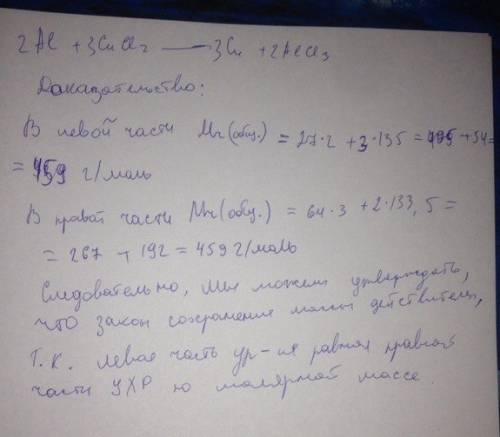 2Al + 3CuCl₂ — 3Cu + 2AlCl₃
Доказательство:
В левой части Mr(общ.) = 27·2 + 3·135 = 405 + 54 =
= 459 г/моль
В правой части Mr(общ.) = 64·3 + 2·133,5 =
= 267 + 192 = 459 г/моль
Следовательно, мы можем утверждать,
что закон сохранения массы действителен,
т.к. левая часть ур-ия равна правой
части УХР по молярной массе.